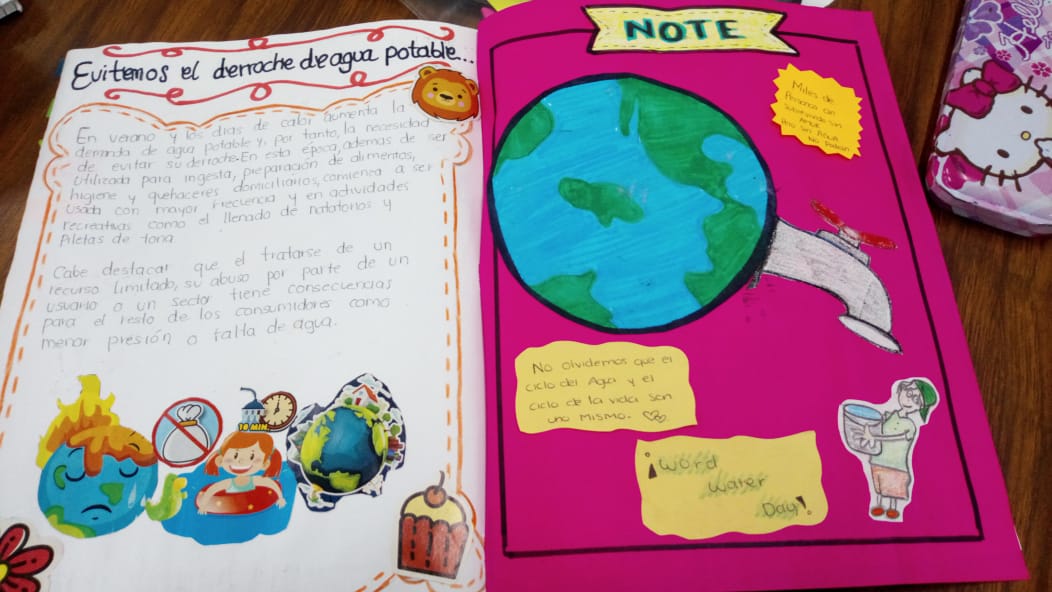 Evitemos el derroche de agua potable...
En verano y los días de calor aumenta la
demanda de agua potable y, por tanto, la necesidad
de evitar su derroche. En esta época, además de ser
utilizada para ingesta, preparación de alimentos,
higiene y quehaceres domiciliarios, comienza a ser
usada con mayor frecuencia y en actividades
recreativas como el llenado de natatorios y
Piletas de lona
Cabe destacar que el tratarse de un
recurso limitado, su abuso por parte de un
usuario o un sector tiene consecuencias
para el resto de los consumidores como
menor presión o falta de agua.
10 MIN.
NOTE
Miles de
Personas can
Sobrevivido sin
AMOR
Pero sin AGUA
No Podrán
No olvidemos que el
ciclo del Agua y el
ciclo de la vida son
uno MISMO.
¡Word
Water
Day!
Hello